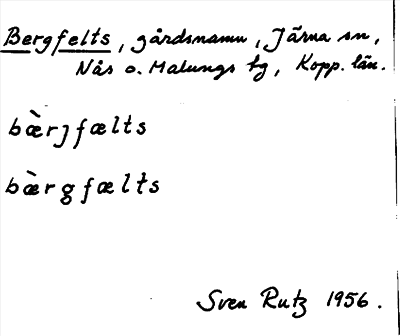 Bergfelts, gårdsnamn, Järna sn,
Nås o. Malungs tg, Kopp. län.
bæ̀rjfælts
bæ̀rgfælts
Sven Rutz 1956.